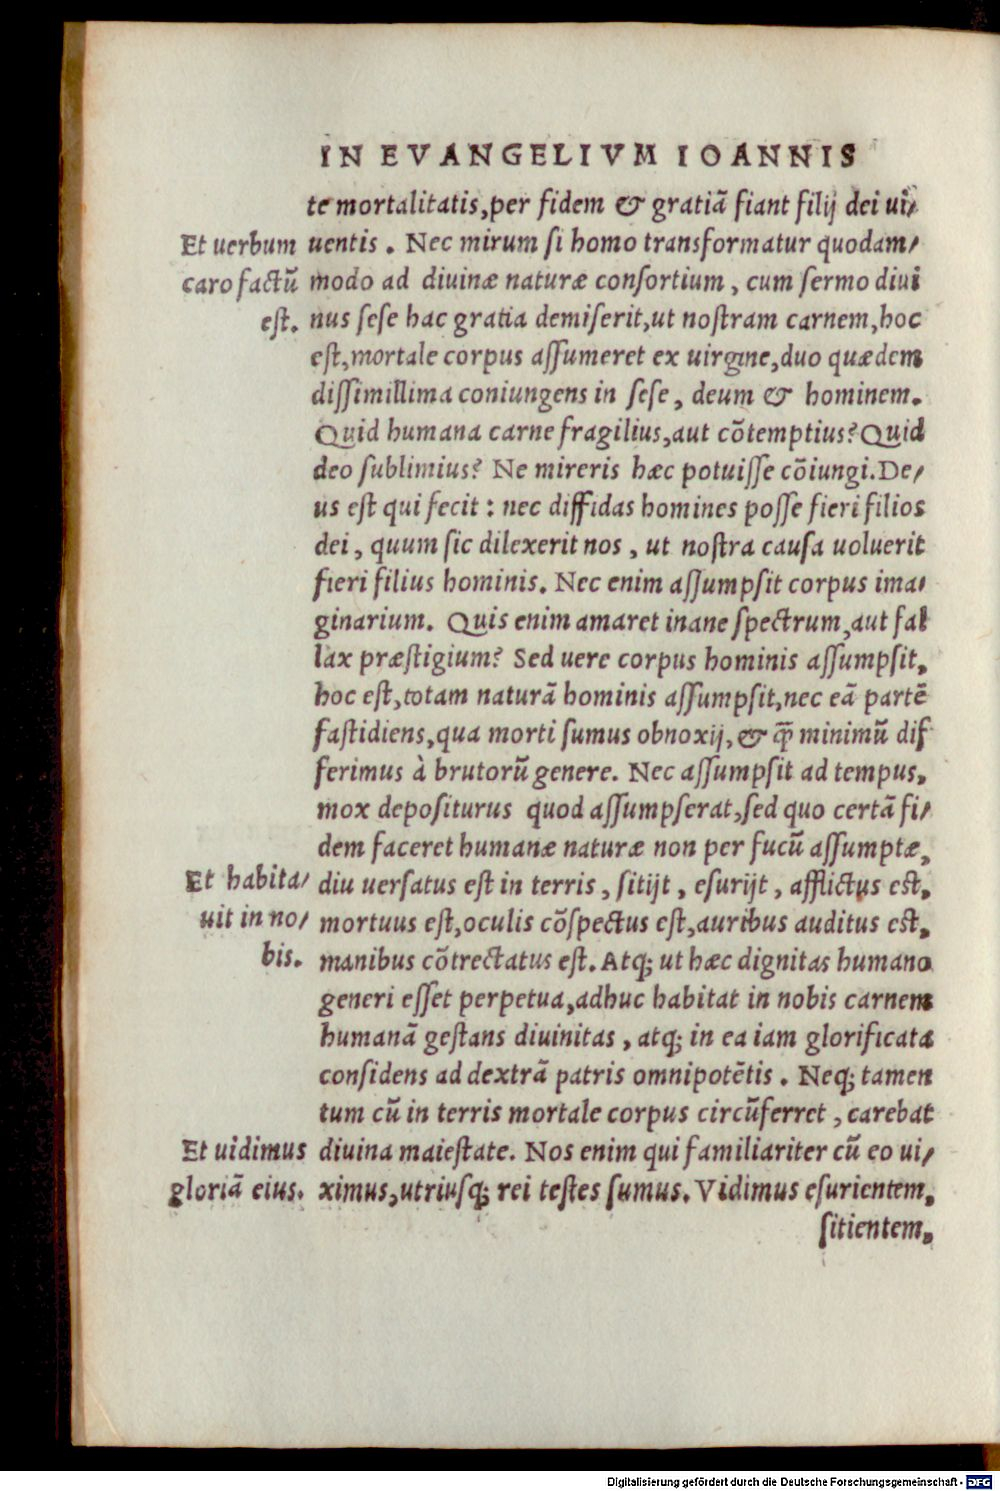 IN EVANGELIVM IOANNIS
te mortalitatis, per fidem & gratiā fiant filij dei ui/
Et uerbum uentis. Nec mirum si homo transformatur quodam/
caro factū modo ad diuinæ naturæ consortium, cum sermo diui
est. nus sese hac gratia demiserit, ut nostram carnem, hoc
est, mortale corpus assumeret ex uirgine, duo quædem
dissimillima coniungens in sese, deum & hominem.
Quid humana carne fragilius, aut cōtemptius? Quid
deo sublimius? Ne mireris hæc potuisse cōiungi. De/
us est qui fecit: nec diffidas homines posse fieri filios
dei, quum sic dilexerit nos, ut nostra causa uoluerit
fieri filius hominis. Nec enim assumpsit corpus ima/
ginarium. Quis enim amaret inane spectrum, aut fal
lax præstigium? Sed uere corpus hominis assumpsit,
hoc est, totam naturā hominis assumpsit, nec eā partē
fastidiens, qua morti sumus obnoxij, & ꝙ minimū dif
ferimus à brutorū genere. Nec assumpsit ad tempus,
mox depositurus quod assumpserat, sed quo certā fi/
dem faceret humanæ naturæ non per fucū assumptæ,
Et habita/ diu uersatus est in terris, sitijt, esurijt, afflictus est,
uit in no/ mortuus est, oculis cōspectus est, auribus auditus est,
bis. manibus cōtrectatus est. Atq; ut hæc dignitas humano
generi esset perpetua, adhuc habitat in nobis carnem
humanā gestans diuinitas, atq; in ea iam glorificata
considens ad dextrā patris omnipotētis. Neq; tamen
tum cū in terris mortale corpus circūferret, carebat
Et uidimus diuina maiestate. Nos enim qui familiariter cū eo ui/
gloriā eius. ximus, utriusq; rei testes sumus. Vidimus esurientem,
sitientem,
Digitalisierung gefördert durch die Deutsche Forschungsgemeinschaft - DFG